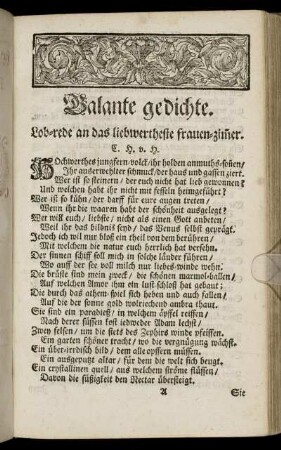 Galante gedichte.
Lob-rede an das liebwertheste frauen-zim̃er.
C. H. v. H.
Hochwerthes jungfern-volck/ ihr holden anmuths-sonnen/
Ihr auserwehlter schmuck/ der haus und gassen ziert.
Wer ist so steinern/ der euch nicht hat lieb gewonnen?
Und welchen habt ihr nicht mit fesseln heimgeführt?
Wer ist so kühn/ der darff für eure augen treten/
Wenn ihr die waaren habt der schönheit ausgelegt?
Wer will euch/ liebste/ nicht als einen Gott anbeten/
Weil ihr das bildniß seyd/ das Venus selbst geprägt.
Jedoch ich wil nur bloß ein theil von dem berühren/
Mit welchem die natur euch herrlich hat versehn.
Der sinnen schiff soll mich in solche länder führen/
Wo auff der see voll milch nur liebes-winde wehn.
Die brüste sind mein zweck/ die schönen marmol-ballen/
Auf welchen Amor ihm ein lust-schloß hat gebaut;
Die durch das athem-spiel sich heben und auch fallen/
Auf die der sonne gold wolriechend ambra thaut.
Sie sind ein paradieß/ in welchem äpffel reiffen/
Nach derer süssen kost iedweder Adam lechst/
Zwey felsen/ um die stets des Zephirs winde pfeiffen.
Ein garten schöner tracht/ wo die vergnügung wächst.
Ein über-irrdisch bild/ dem alle opffern müssen.
Ein ausgeputzt altar/ für dem die welt sich beugt.
Ein crystallinen quell/ aus welchem ströme flüssen/
Davon die süßigkeit den Nectar übersteigt.
A Sie